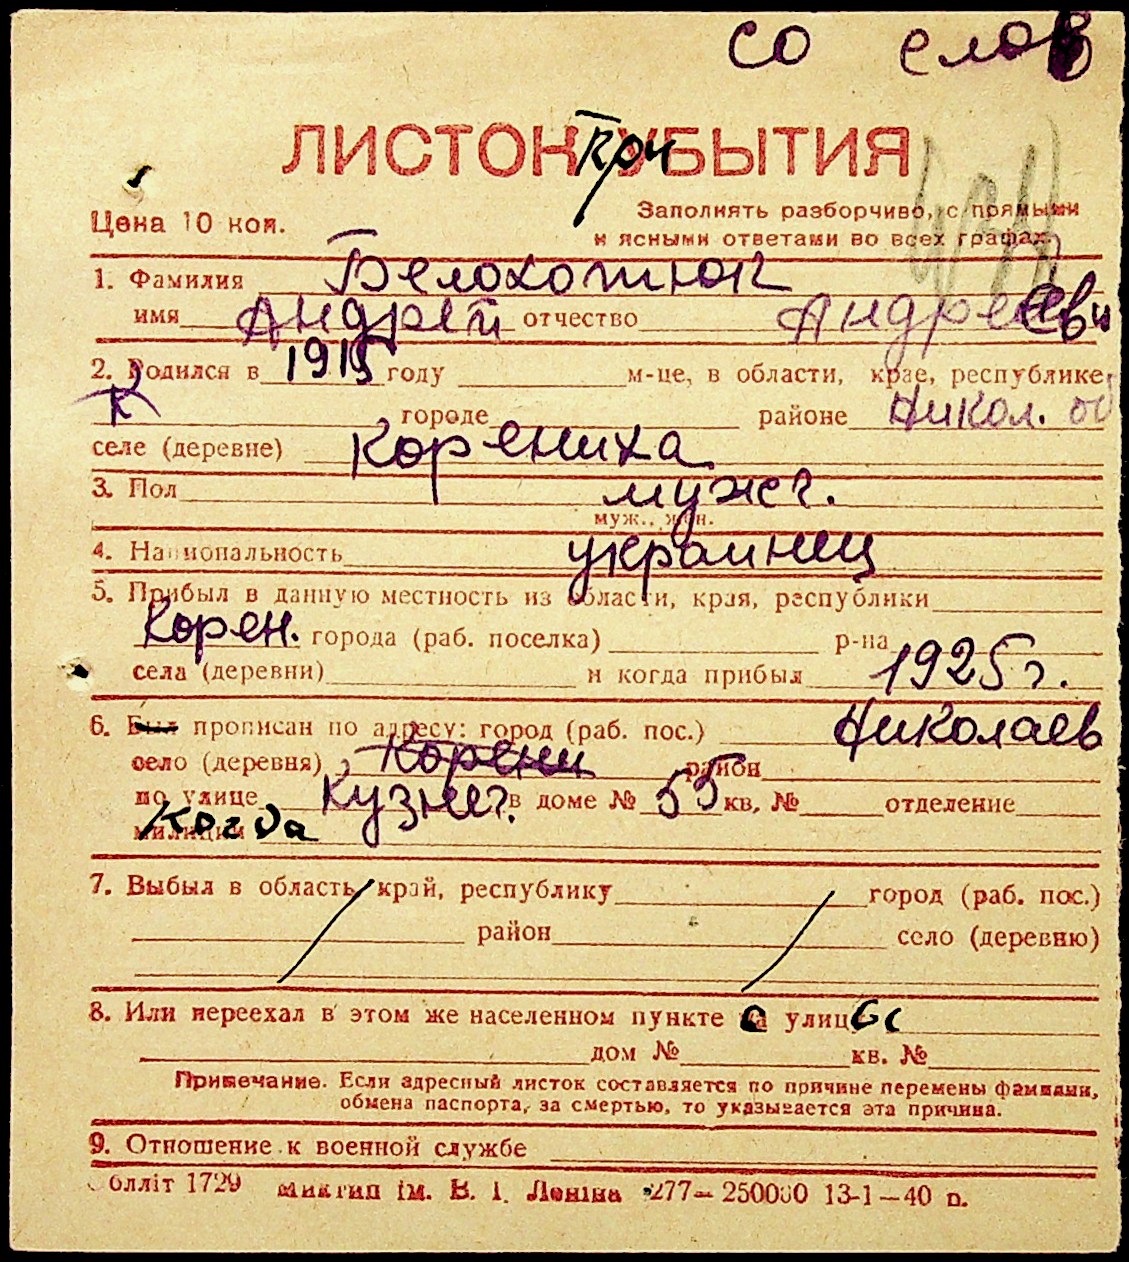 со слов
ЛИСТОК УБЫТИЯ
Цена 10 коп.
Заполнять разборчиво, с прямыми
и ясными ответами во всех графах.
1. Фамилия Белохотюк
имя Андрей отчество Андрееви
2. Родился в 1915 году м-це, в области, крае, республике
К городе районе Никол. об
селе (деревне) Корениха
3. Пол мужч.
муж., жен.
4. Национальность украинец
5. Прибыл в данную местность из области, края, республики
Корен. города (раб. поселка) р-на
села (деревни) и когда прибыл 1925 г.
6. Был прописан по адресу: город (раб. пос.) Николаев
село (деревня) Корени район
по улице Кузнеч. в доме № 55 кв. № отделение
милиции Когда
7. Выбыл в область, край, республику город (раб. пос.)
район село (деревню)
8. Или переехал в этом же населенном пункте на улицу
дом № кв. №
Примечание. Если адресный листок составляется по причине перемены фамилии,
обмена паспорта, за смертью, то указывается эта причина.
9. Отношение к военной службе
Облліт 1729 Миктип ім. В. І. Леніна 277— 250000 13-1—40 п.